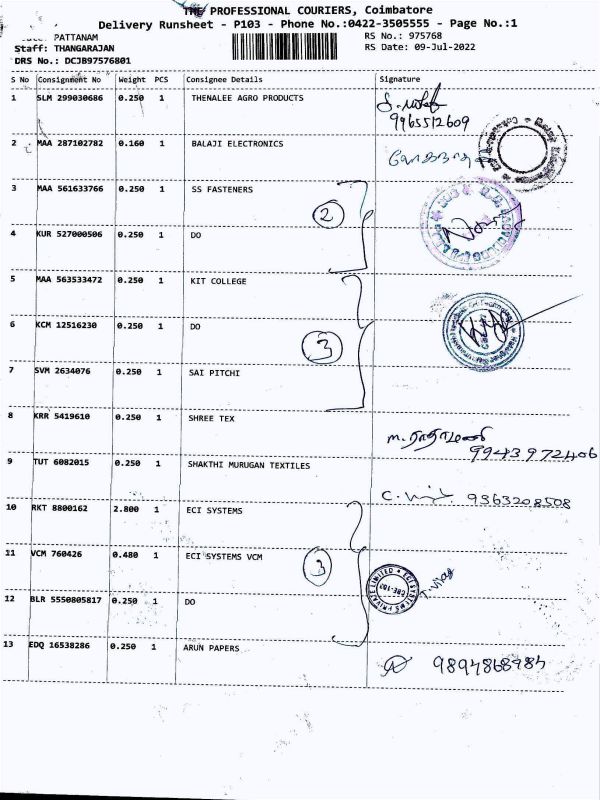 THE PROFESSIONAL COURIERS, Coimbatore
Delivery Runsheet - P103 - Phone No.:0422-3505555 - Page No.:1
PATTANAM RS No.: 975768
Staff: THANGARAJAN RS Date: 09-Jul-2022
DRS No.: DCJB97576801
S No Consignment No Weight PCS Consignee Details Signature
1 SLM 299030686 0.250 1 THENALEE AGRO PRODUCTS
9965512609
2 MAA 287102782 0.160 1 BALAJI ELECTRONICS
3 MAA 561633766 0.250 1 SS FASTENERS
2
4 KUR 527000506 0.250 1 DO
5 MAA 563533472 0.250 1 KIT COLLEGE
6 KCM 12516230 0.250 1 DO
3
7 SVM 2634076 0.250 1 SAI PITCHI
8 KRR 5419610 0.250 1 SHREE TEX
9943972406
9 TUT 6082015 0.250 1 SHAKTHI MURUGAN TEXTILES
9363208508
10 RKT 8800162 2.800 1 ECI SYSTEMS
11 VCM 760426 0.480 1 ECI SYSTEMS VCM
3
ECI SYSTEMS PRIVATE LIMITED
CBE-103
12 BLR 5550805817 0.250 1 DO
13 EDQ 16538286 0.250 1 ARUN PAPERS
9894868984